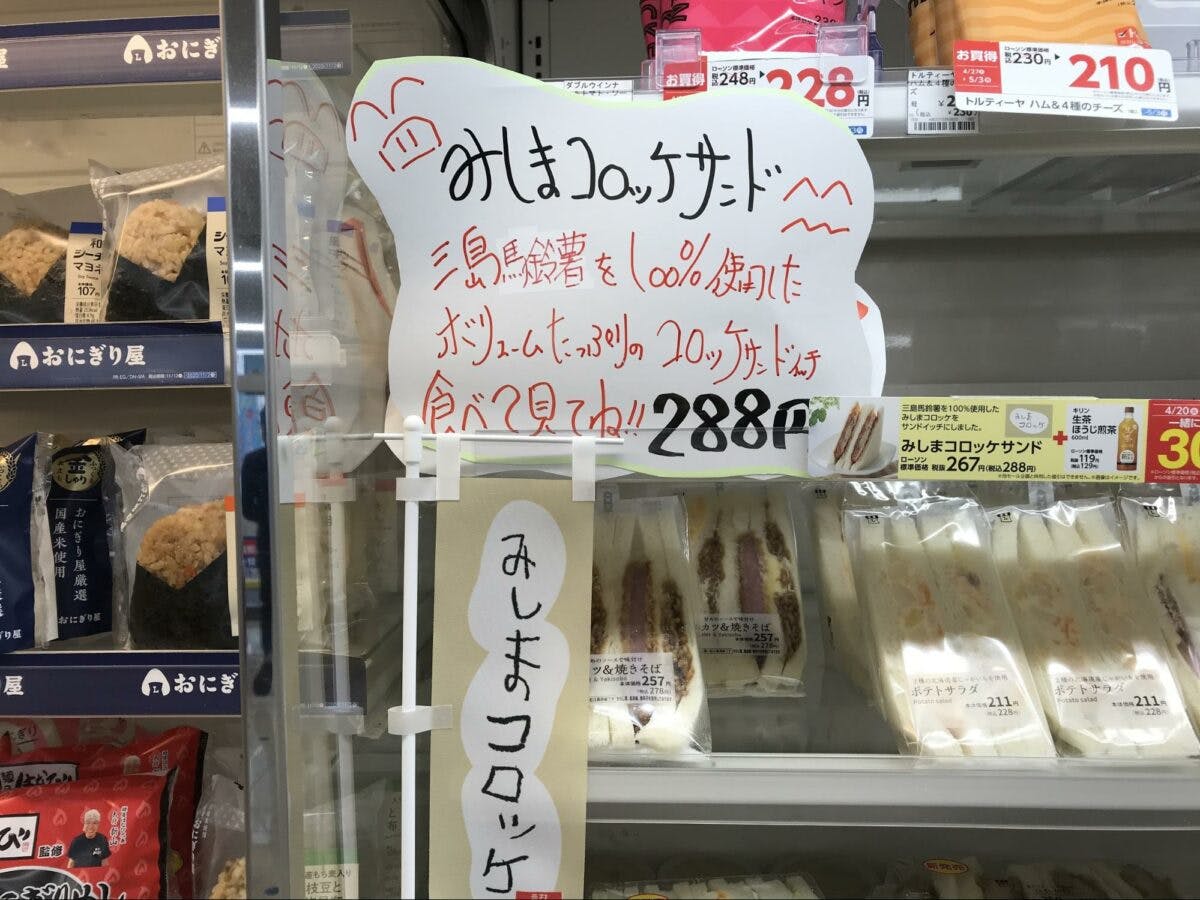 おにぎり屋
ダブルウインナー
お買得
ローソン標準価格
248円
228円
トルティーヤ
ハム&4種のチーズ
お買得
4/27
5/3
ローソン標準価格
230円
210円
トルティーヤ ハム&4種のチーズ
みしまコロッケサンド
三島馬鈴薯を100%使用した
ボリュームたっぷりのコロッケサンドイッチ
食べて見てね!!288円
三島馬鈴薯を100%使用した
みしまコロッケを
サンドイッチにしました。
みしまコロッケサンド
ローソン
標準価格 税抜267円(税込288円)
みしま
コロッケ
+
キリン
生茶
ほうじ煎茶
600ml
税抜119円
(税込129円)
4/20
一緒に
30
みしまのコロッケ
和
シーチ
マヨネ
107円
おにぎり屋
おにぎり屋厳選
国産米使用
おにぎり屋
おにぎ
監修
カツ&焼きそば
257円
ツ&焼きそば
& Yakisoba
本体価格257円
(税込278円)
2種の北海道産じゃがいも使用
ポテトサラダ
Potato salad
本体価格211円
(税込228円)
2種の北海道産じゃがいも使用
ポテトサラダ
Potato salad
本体価格211円
(税込228円)
もち麦入り
枝豆と
新発売